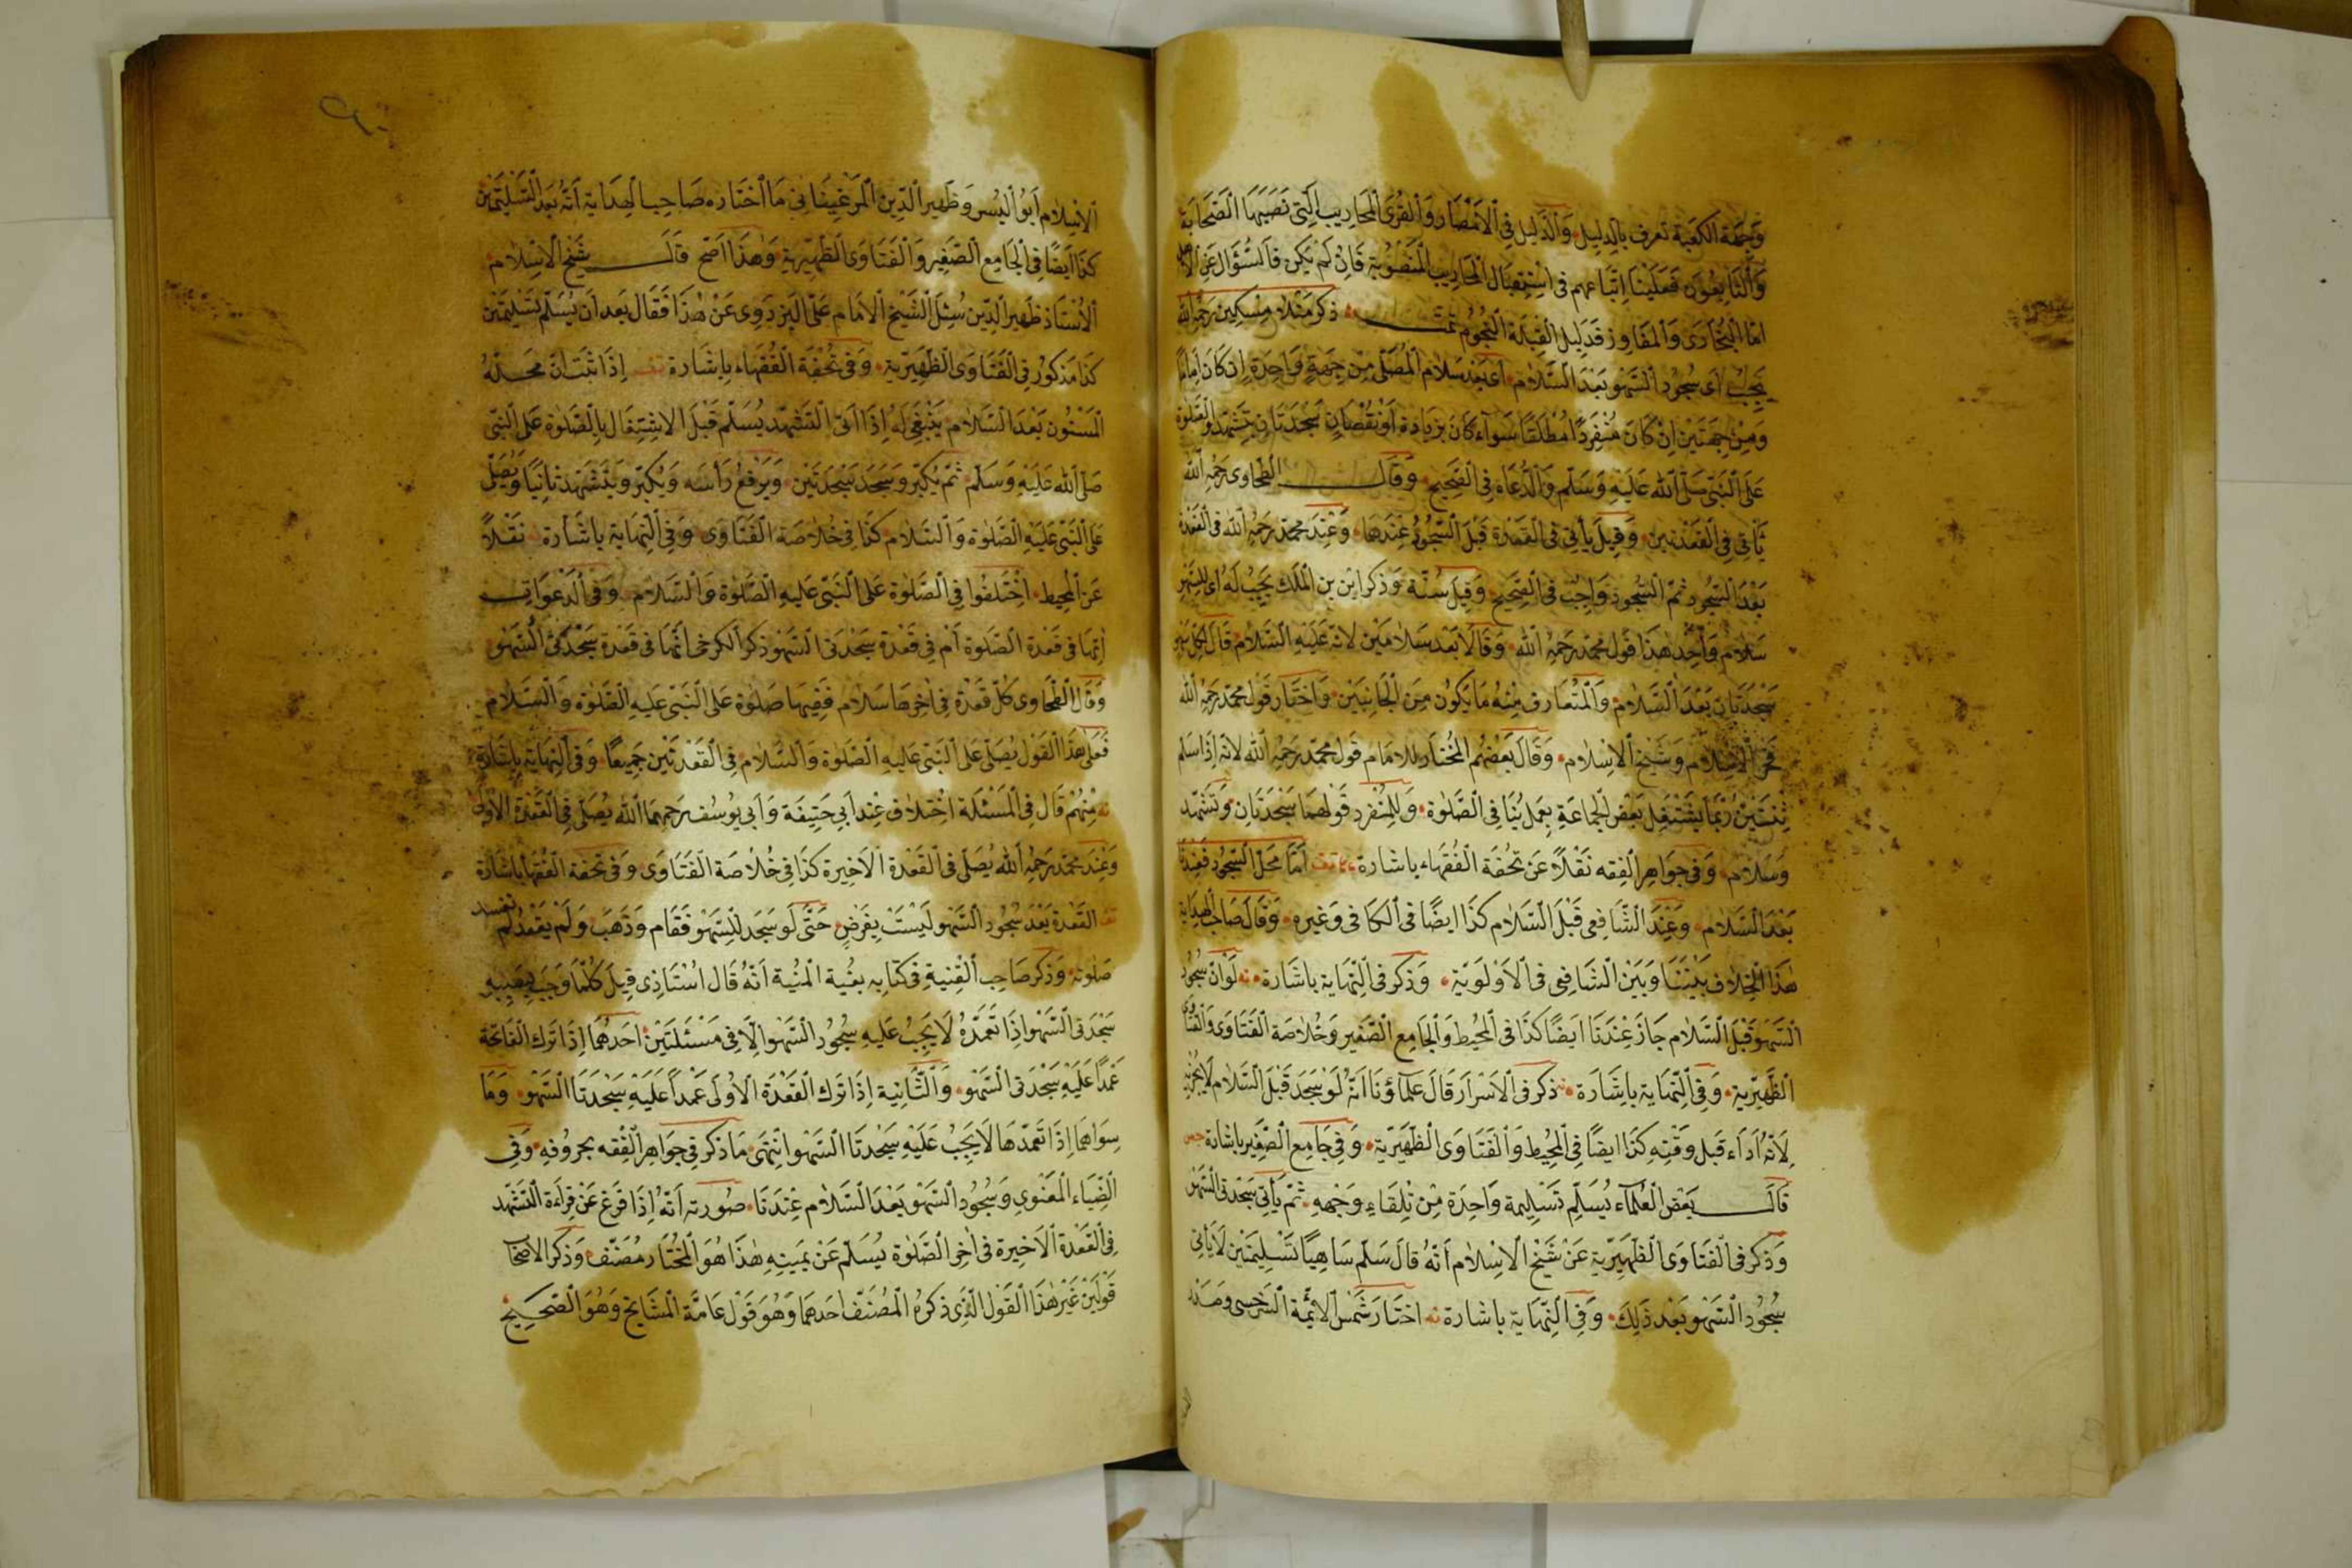 وَجِهَة الكعبة تعرف بالدليل وَالدَّليل فى الْاَمْصَار وَالْقُرَى المحاريب التى نَصَبَهَا الصَّحَابَة
وَالتَّابِعُون فَعَلَيْنَا اِتّباعهم فى اسْتِقبَال المحاريب المَنْصُوبَة فَاِنْ لَمْ يَكن فَالسُّؤَال عَن الاهل
امّا البحَار وَالمفَاوز فَدَلِيل القِبلَة النجُوم تمت ذكر منلا مسكين رَحمَه الله
يَجِبُ اى سُجُود السَّهو بَعْدَ السَّلام اى بَعْد سَلام المُصَلّى مِن جِهَةٍ وَاحِدَة اِن كَانَ اِمَامًا
وَمِن جِهَتَيْن اِنْ كَانَ مُنْفَرِدًا مُطْلَقًا سَوَآء كَانَ بِزِيَادَة اَوْ نُقْصَان سَجْدَتَان بتَشَهّد وَالصَّلوة
عَلَى النَّبِىّ صَلّى الله عَلَيْهِ وَسَلّم وَالدُّعَاء فى الصَّحِيح وَقَالَ الطحاوى رَحمَه الله
يَأتى فى القَعْدَتين وَقِيلَ يأتى فى القَعْدَة قَبْلَ السّجُود عِنْدَهَا وَعِنْدَ محمّد رَحِمَه الله فى القَعْدَة
بَعْدَ السّجُود ثمّ السّجُود وَاجِبٌ فى الصَّحيح وَقِيلَ سُنّة وَذكر ابْن بن المَلَك يَجِبُ لَهُ اى للسَّهْو
سَلام وَاحِد هٰذَا قَول محمّد رَحِمَه الله وَقَالَا بَعْد سَلامَيْن لانّه عَلَيْهِ السَّلام قَالَ لِكُلّ سَهْو
سَجْدَتَان بَعْدَ السَّلام وَالمُتَعَارف مِنْهُ مَا يَكُون مِنَ الجَانِبَيْن وَاخْتَار قَول محمّد رَحِمَه الله
فَخر الاِسْلام وَشَيْخ الاِسْلام وَقَالَ بَعْضُهُم المُخْتَار للامَام قَول محمّد رَحِمَه الله لانّه اِذَا سَلم
ثِنْتَيْن رُبَّمَا يَشْتَغِل بَعْض الجماعَة بِعَمَل يُنَا فى الصَّلوة وَللمُنْفَرد قَولهمَا سَجْدَتَان وَتَشَهّد
وَسَلام وَفى جَوَاهِر الْفِقه نَقْلًا عَن تحُفَة الفُقَهَاء باشَارة تف اَمَّا مَحلّ السّجُود فَعِنْدَنَا
بَعْدَ السَّلام وَعِنْدَ الشَّافِعى قَبْلَ السَّلام كَذَا ايضًا فى الكَافى وَغيره وَقَالَ صَاحِب الهدَاية
هٰذَا الخلاف بَيْنَنَا وَبَيْنَ الشّافِعى فى الاَوْلَوِيّة وَذكر فى النّهَاية باشَارة نه لَو انّ سُجُود
السَّهو قَبْلَ السَّلام جَازَ عِنْدَنَا اَيضًا كذَا فى المُحِيط وَالجامِع الصَّغير وَخُلاصَة الفَتَاوَى وَالفتَاوى
الظَّهِيرِيّة وَفى النّهَاية بِاشَارَة نه ذكر فى الاَسْرَار قَالَ عُلَمَآؤُنَا اَنّهُ لَو سَجَدَ قَبْلَ السَّلام لا يُجْزيه
لِاَنّهُ اَدَاء قَبل وَقْتِه كذَا ايضًا فى المُحِيط وَالفَتَاوَى الظَّهِيرِيّة وَفى جَامِع الصَّغِير باشَارة جص
قَالَ بَعْض العُلَمَاء يُسَلّم تَسْلِيمة وَاحِدَة مِنْ تِلْقَاء وَجْهِهِ ثمّ يَأتى بسَجْدَتى السَّهْو
وَذكر فى الفَتَاوَى الظّهِيريّة عَنْ شَيْخ الاِسْلام اَنّهُ قالَ سَلّم سَاهِيًا تَسْلِيمَتَين لا يَأتى
سُجُود السَّهو بَعْد ذَلِكَ وَفى النّهَاية باشَارة نه اخْتَار شَمْس الائمّة السَّرخسى وصَدْر
الاِسْلام اَبُو اليُسر وَظهِير الدّين المَرْغِينَانى مَا اخْتَاره صَاحِب الهِدَاية اَنّهُ بَعْدَ التَّسْلِيمَتَيْن
كَذَا اَيضًا فى الجَامِع الصَّغير وَالفَتَاوَى الظَّهِيريّة وَهٰذَا اَصَحّ قَالَ شَيْخ الاِسْلام
الاُسْتَاذ ظَهِير الدّين سُئِلَ الشَّيْخ الاِمَام عَلىّ البَزدَوِى عَنْ هٰذَا فَقَالَ بَعد اَن يُسَلّم تَسْلِيمَتين
كَذَا مَذكُور فى الفَتَاوَى الظّهِيرِيّة وَفى تُحْفَة الفُقَهَاء باِشَارة تف اِذَا ثَبَتَ انّ محَلّهُ
المَسْنُون بَعْدَ السَّلام يَنْبَغِى لَهُ اِذَا اتى التَّشَهّد يُسَلّم قَبْلَ الاشْتِغَال بالصَّلوة عَلَى النَّبِىّ
صَلى الله عَلَيْهِ وَسَلّم ثمّ يُكَبّر وَسَجَدَ سَجْدَتَيْن وَيَرْفَعُ رَأسَه وَيُكَبّر وَيَتَشَهّد ثانِيًا وَيُصَلّى
عَلَى النّبىّ عَلَيْهِ الصَّلوة وَالسّلام كذَا فى خُلاصَة الفَتَاوَى وَفى النّهَاية باشَارة نَقْلًا
عَن المُحِيط اخْتَلفُوا فى الصَّلوة عَلَى النّبىّ عَليهِ الصّلوة وَالسَّلام وَفى الدَّعَوَات
اِنّهَا فى قَعْدَة الصَّلوة اَمْ فى قَعْدَة سَجْدَتى السّهو ذكر الكرخى انّهَا فى قَعْدة سَجْدَتى السَّهْو
وَقَال الطّحَاوى كُلّ قعْدَة فى اخِرهَا سَلام فَفِيهَا صَلوة عَلَى النّبىّ عَليهِ الصّلوة وَالسّلام
فَعَلى هٰذَا القَول يُصَلّى عَلَى النّبىّ عَليهِ الصّلوة وَالسّلام فى القَعْدَتَيْن جَمِيعًا وَفى النّهَايَة باِشَارة
نه مِنْهُمْ قَال فى المَسْئَلَة اخْتِلاف عِنْد اَبى حَنِيفَة وَاَبى يُوسُف رَحِمهمَا الله يُصَلّى فى القَعْدَة الاُولى
وَعِنْدَ محمّد رَحِمَه الله يُصَلّى فى القَعْدَة الاَخِيرَة كذَا فى خُلاصَة الفَتَاوَى وَفى تحْفَة الفُقهَاء باشَارة
تف القَعْدة بَعْدَ سُجُود السَّهو لَيْسَتْ بِفَرْضٍ حَتّى لَو سَجَدَ للسَّهْو فَقَامَ وَذَهَبَ وَلَمْ يَقعُد لم تفسد
صَلوته وَذكر صَاحِب القُنِية فى كتَابه بغْيَة المُنْية اَنّهُ قَال اُسْتَاذِى قِيلَ كُلّمَا وَجَبَ
سَجْدَتى السّهْو اِذَا تَعَمّدَهُ لَا يَجِبُ عَليهِ سُجُود السَّهْو اِلّا فى مَسْئَلتَيْن احَدهُمَا اِذَا تَرَك الفَاتحَة
عَمْدًا عَلَيْهِ سَجْدَتى السَّهْو وَالثّانِية اِذَا تَرَك القَعْدَة الاُولَى عَمْدًا عَلَيْهِ سَجْدَتَا السَّهو وَمَا
سِوَاهما اِذَا تَعَمّدهَا لَا يَجِبُ عَلَيْهِ سَجْدَتَا السَّهو انْتهَى مَا ذكر فى جَوَاهر الفِقه بحرُوفهِ وَفى
الضّيَاء المَعْنَوى وَسُجُود السَّهو بَعْدَ السَّلام عِنْدَنَا صُورته اَنّهُ اِذَا فَرغ عَنْ قِرَاءَة التَّشَهّد
فى القَعْدة الاَخِيرة فى اخِر الصَّلوة يُسَلّم عَنْ يمَينِهِ هٰذَا هُوَ المُخْتَار مُصَنّف وَذكر الاصْحَاب
قَوْلَيْن غَيْر هٰذَا القَوْل الّذِى ذكرهُ المُصَنّف اَحَدهمَا وَهُوَ قَوْل عَامّة المشَايخ وَهُوَ الصَّحِيح